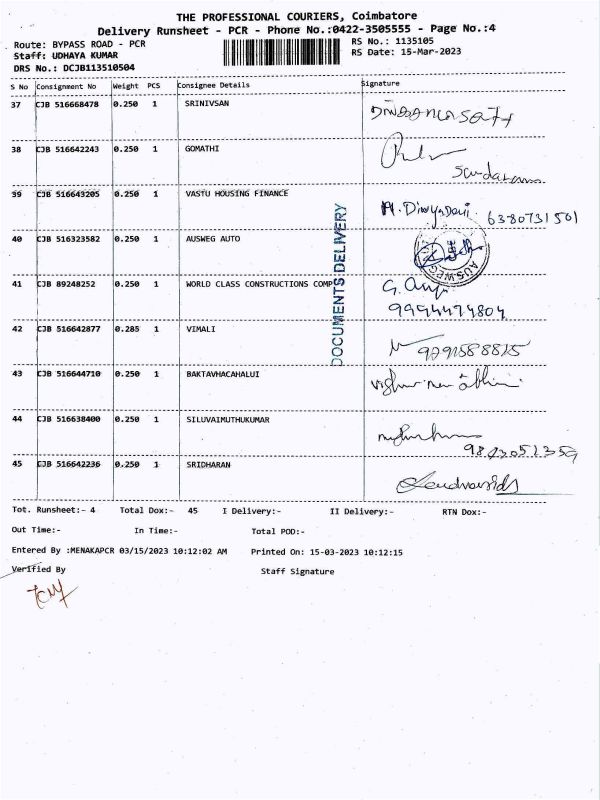 THE PROFESSIONAL COURIERS, Coimbatore
Delivery Runsheet - PCR - Phone No.:0422-3505555 - Page No.:4
Route: BYPASS ROAD - PCR
RS No.: 1135105
Staff: UDHAYA KUMAR
RS Date: 15-Mar-2023
DRS No.: DCJB113510504
S No Consignment No Weight PCS Consignee Details Signature
37 CJB 516668478 0.250 1 SRINIVSAN
38 CJB 516642243 0.250 1 GOMATHI
39 CJB 516643205 0.250 1 VASTU HOUSING FINANCE
6380731501
40 CJB 516323582 0.250 1 AUSWEG AUTO
AUSWEG
41 CJB 89248252 0.250 1 WORLD CLASS CONSTRUCTIONS COMP
DOCUMENTS DELIVERY
42 CJB 516642877 0.285 1 VIMALI
43 CJB 516644710 0.250 1 BAKTAVHACAHALUI
44 CJB 516638400 0.250 1 SILUVAIMUTHUKUMAR
45 CJB 516642236 0.250 1 SRIDHARAN
Tot. Runsheet:- 4 Total Dox:- 45 I Delivery:- II Delivery:- RTN Dox:-
Out Time:- In Time:- Total POD:-
Entered By :MENAKAPCR 03/15/2023 10:12:02 AM Printed On: 15-03-2023 10:12:15
Verified By Staff Signature